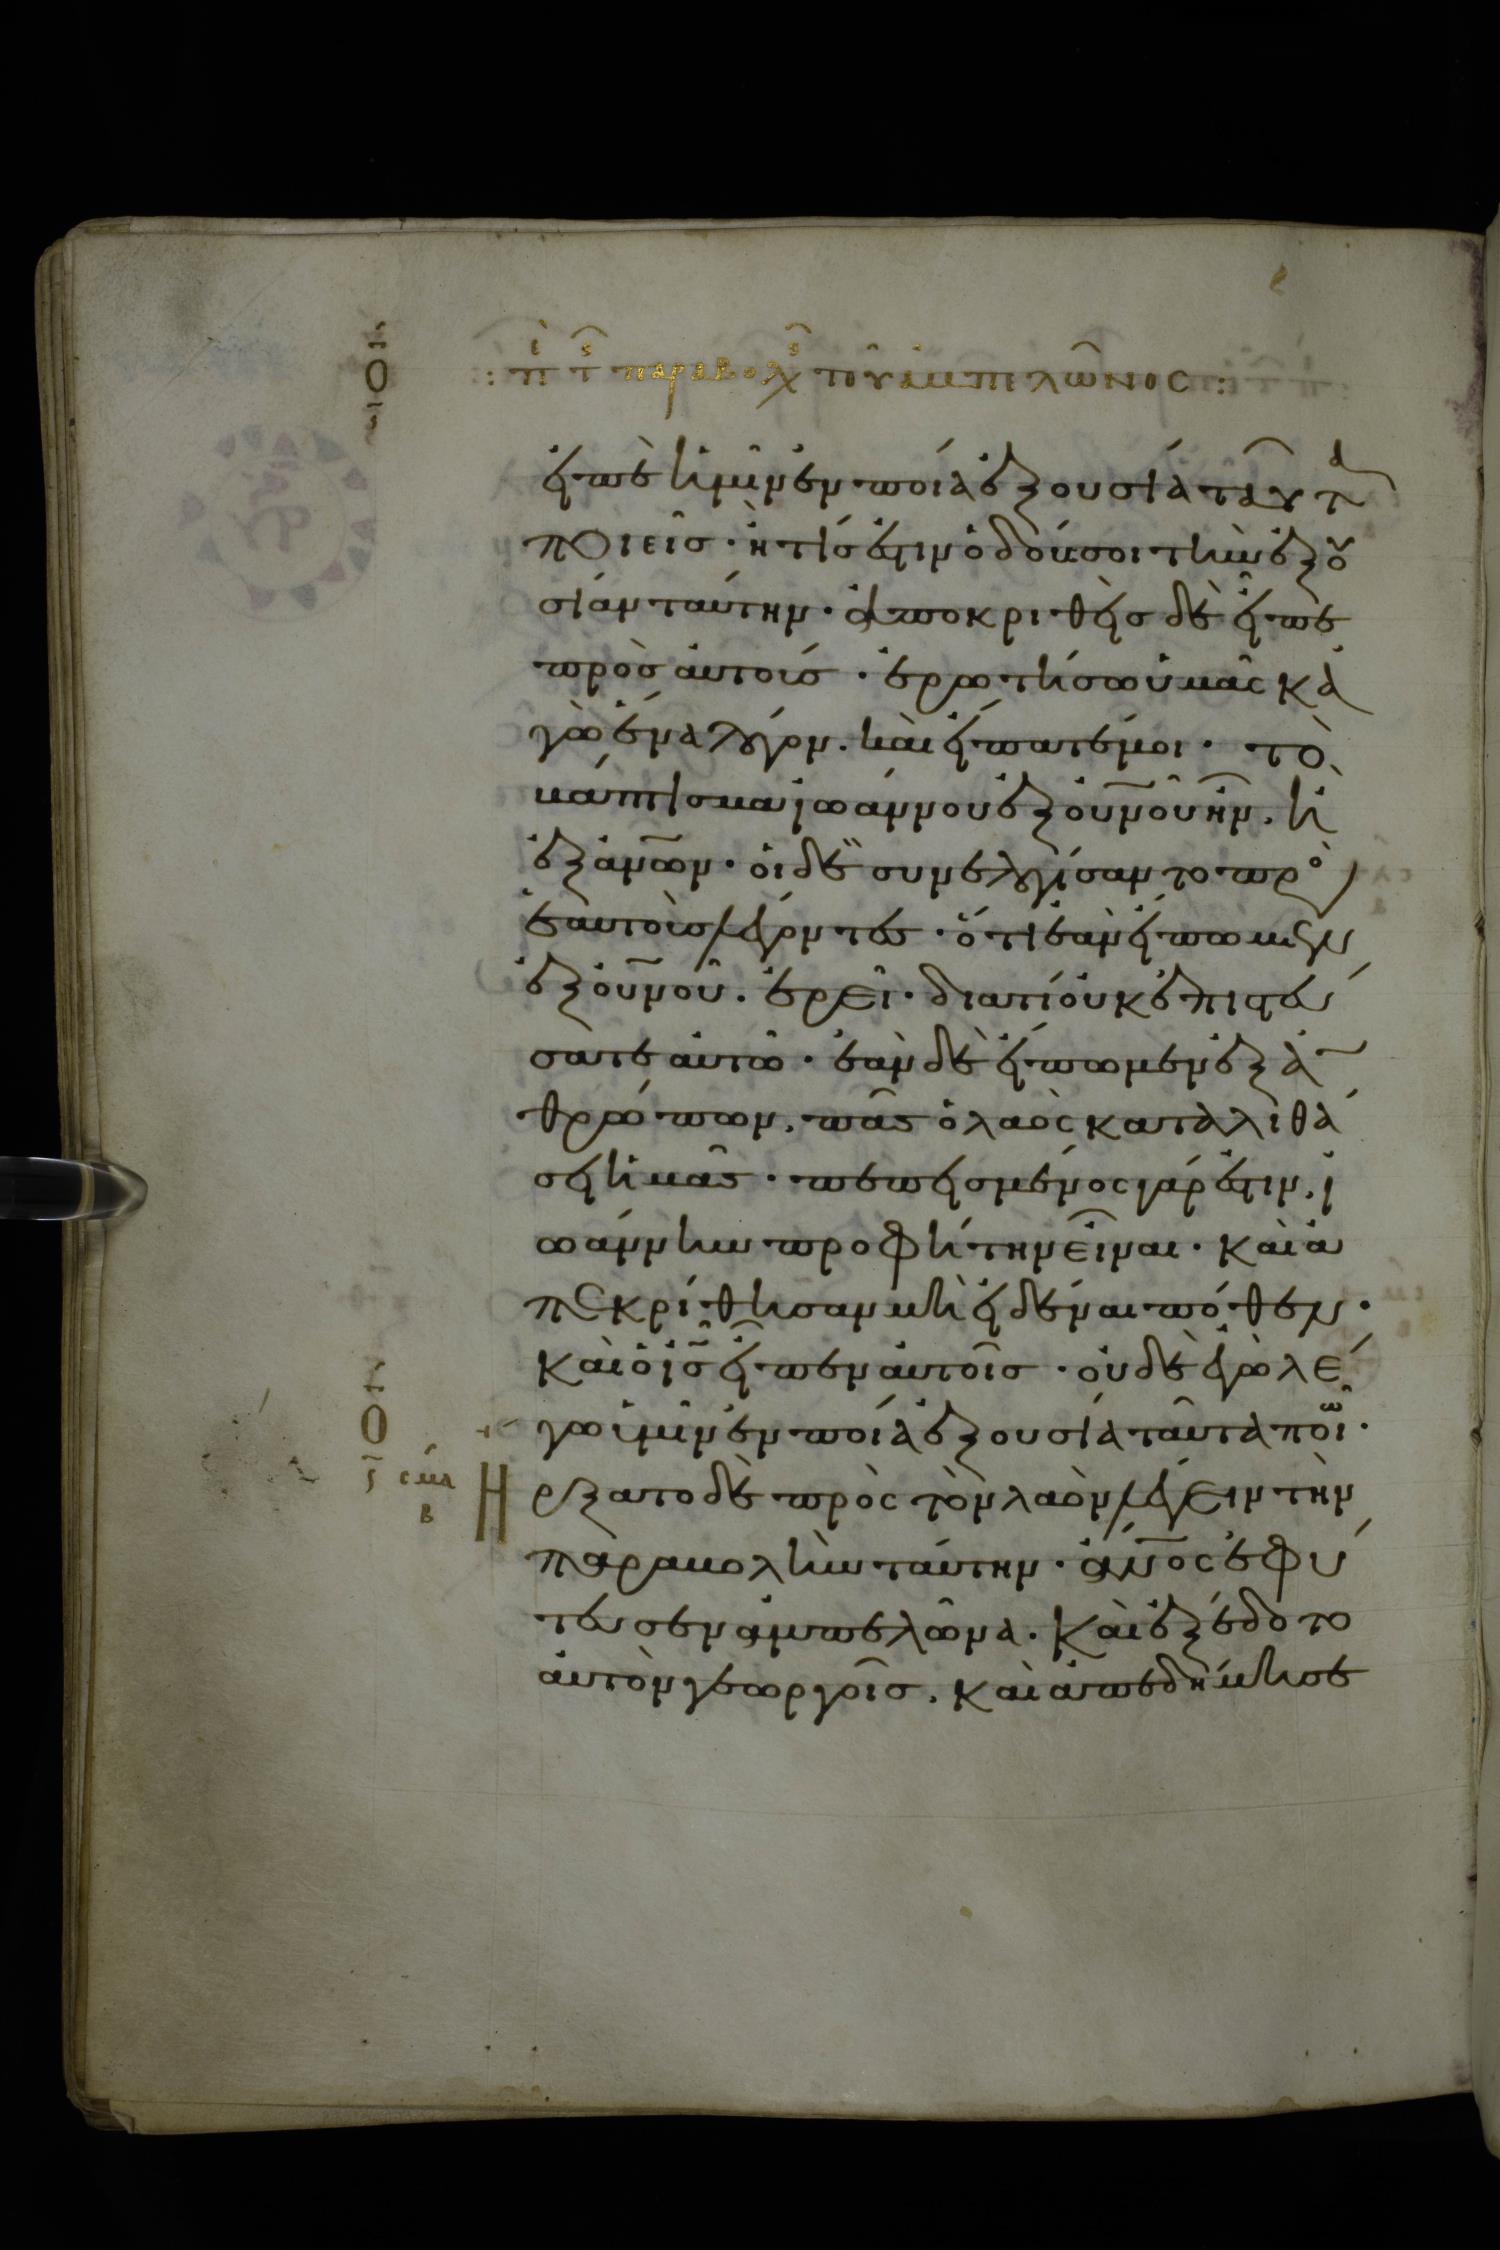 : πὶ τς παραβολς τοῦ ἀμπελῶνος :
εἰπὲ ἡμῖν ἐν ποία ἐξουσία ταῦτα
ποιεῖς· ἢ τίς ἐστιν ὁ δούς σοι τὴν ἐξου
σίαν ταύτην· ἀποκριθεὶς δὲ εἶπε
πρὸς αὐτούς· ἐρωτήσω ὑμᾶς κἀ
γὼ ἕνα λόγον. καὶ εἴπατέ μοι· τὸ
βάπτισμα ἰωάννου ἐξ οὐνοῦ ἦν. ἢ
ἐξ ἀνων· οἱ δὲ συνελογίσαντο πρὸς
ἑαυτοὺς λέγοντες· ὅτι ἐὰν εἴπωμεν
ἐξ οὐνοῦ. ἐρεῖ· διατί οὐκ ἐπιστεύ
σατε αὐτῶ· ἐὰν δὲ εἴπωμεν ἐξ ἀν
θρώπων, πᾶς ὁ λαὸς καταλιθά
σει ἡμᾶς· πεπεισμένος γάρ ἐστιν. ἰ
ωάννην προφήτην εἶναι· καὶ ἀ
πεκρίθησαν μὴ εἰδέναι πόθεν·
καὶ ὁ ις εἶπεν αὐτοῖς· οὐδὲ ἐγὼ λέ
γω ὑμῖν ἐν ποία ἐξουσία ταῦτα ποιῶ·
Ηρξατο δὲ πρὸς τὸν λαὸν λέγειν τὴν
παραβολὴν ταύτην· ἄνος ἐφύ
τευσεν ἀμπελῶνα. καὶ ἐξέδοτο
αὐτὸν γεωργοῖς. καὶ ἀπεδήμησε